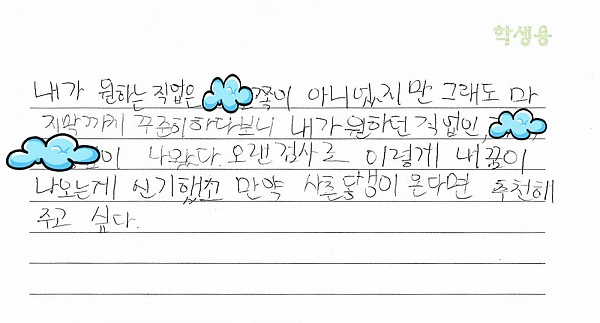 학생용
내가 원하는 직업은 쪽이 아니었지만 그래도 마
지막까지 꾸준히하다보니 내가원하던 직업인,
이 나왔다. 오랜검사로 이렇게 내꿈이
나오는게 신기했고 만약 사촌동생이 온다면 추천해
주고 싶다.